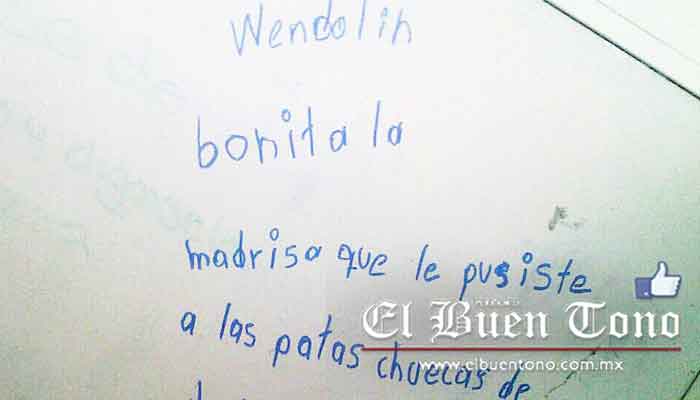 Wendolin
bonita la
madrisa que le pusiste
a las patas chuecas de
El Buen Tono
www.elbuentono.com.mx